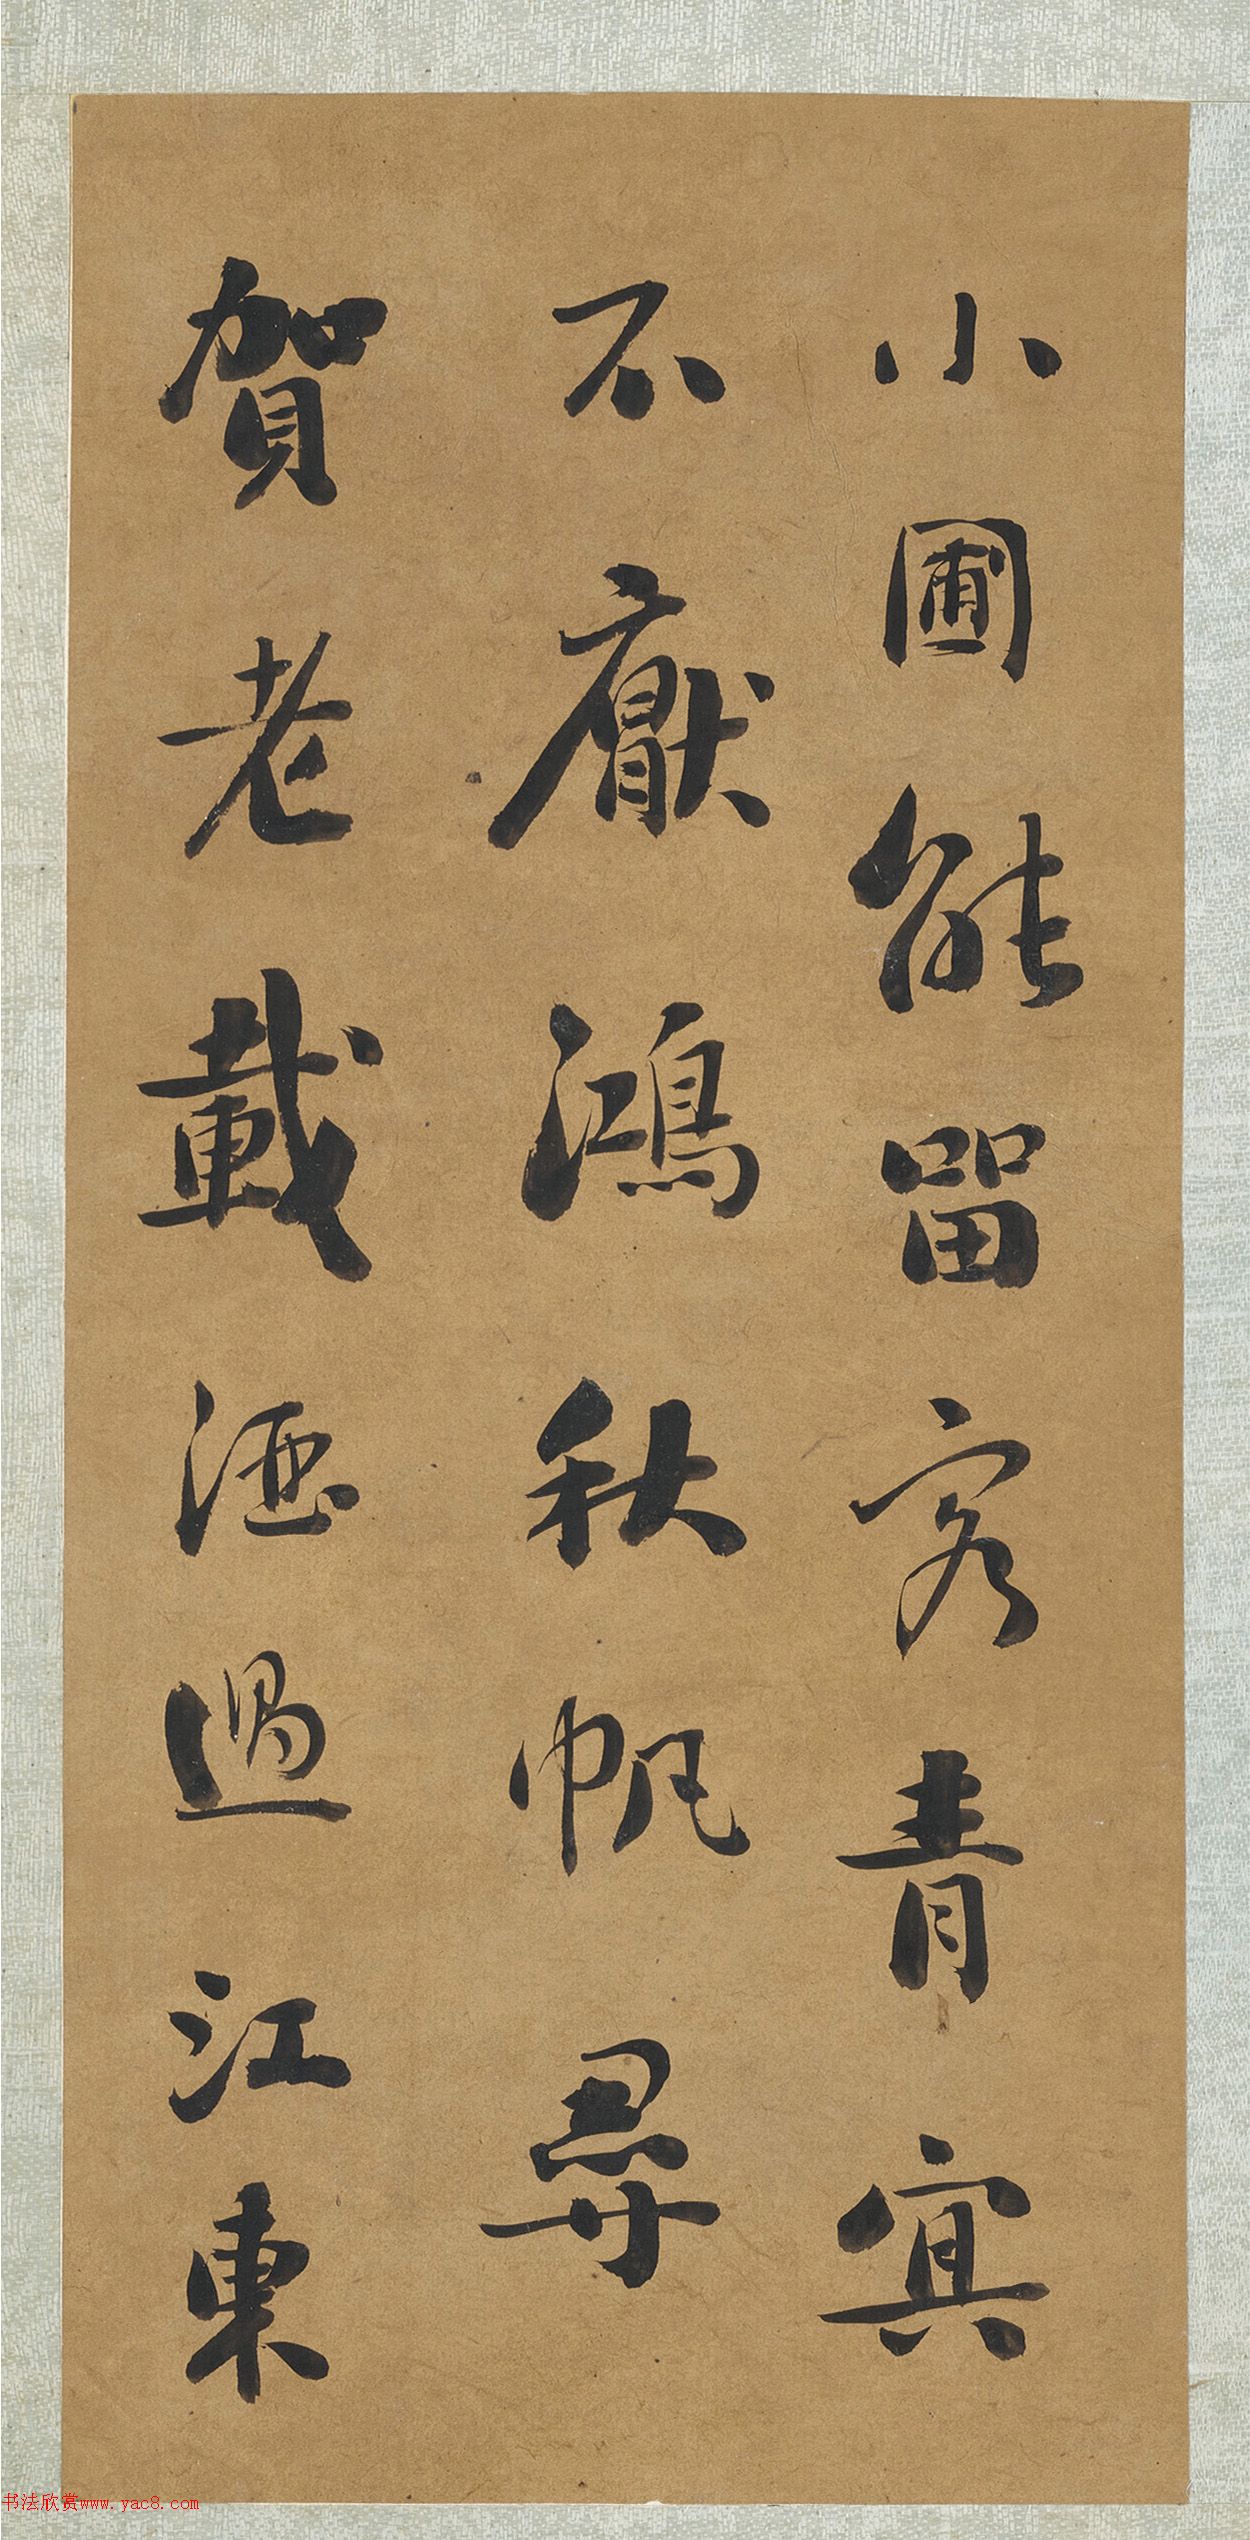 小圃能留客青冥
不厭鴻秋帆尋
賀老載酒過江東
书法欣赏www.yac8.com